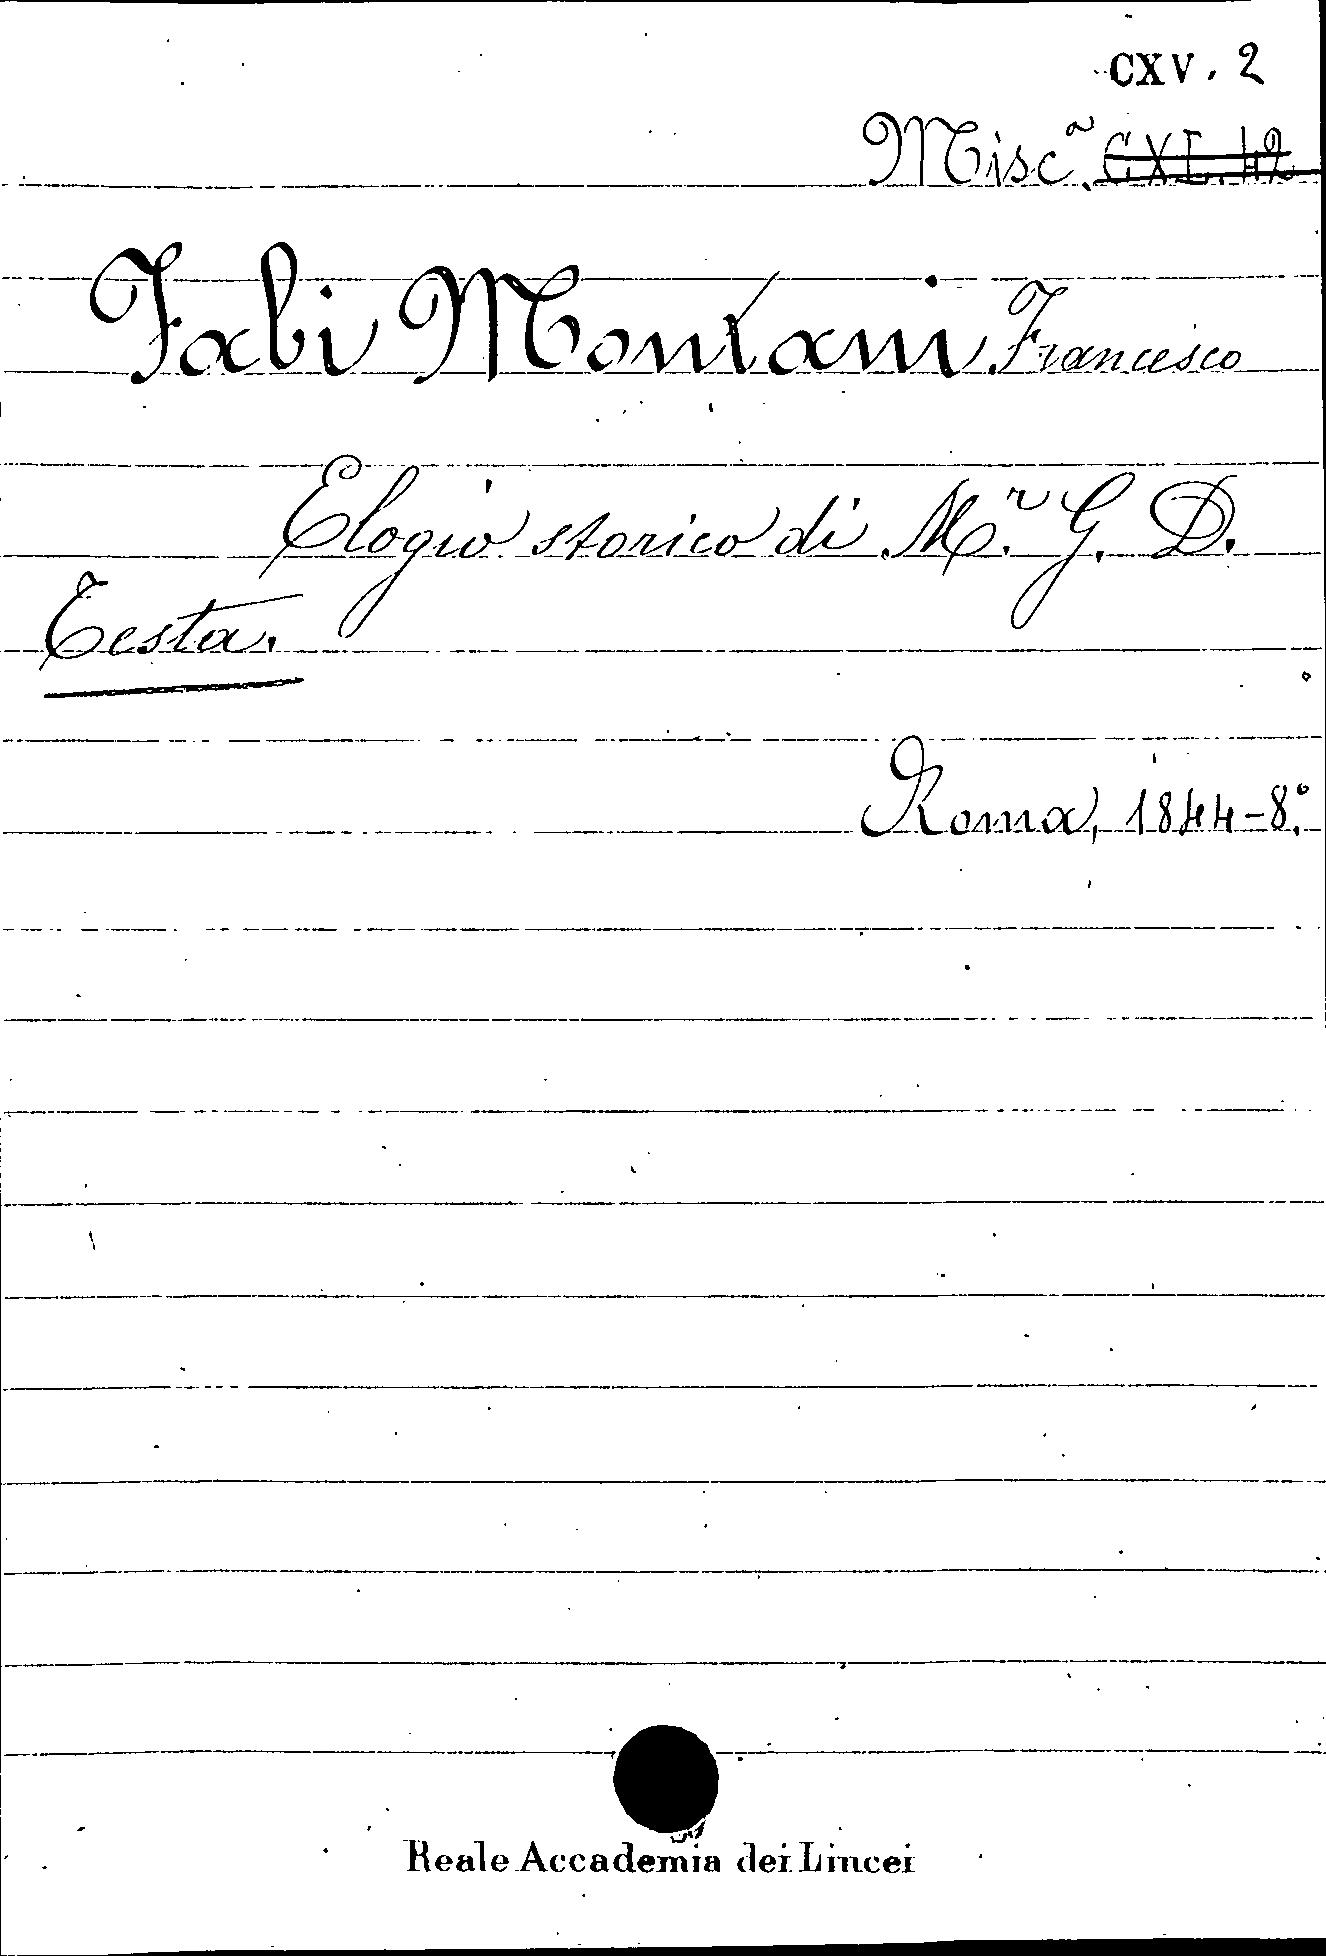 CXV. 2
Misc.ª CXL. 42
Fabi Montani Francesco
Elogio storico di M.r G. D.
Testa.
Roma, 1844-8.°
Reale Accademia dei Lincei